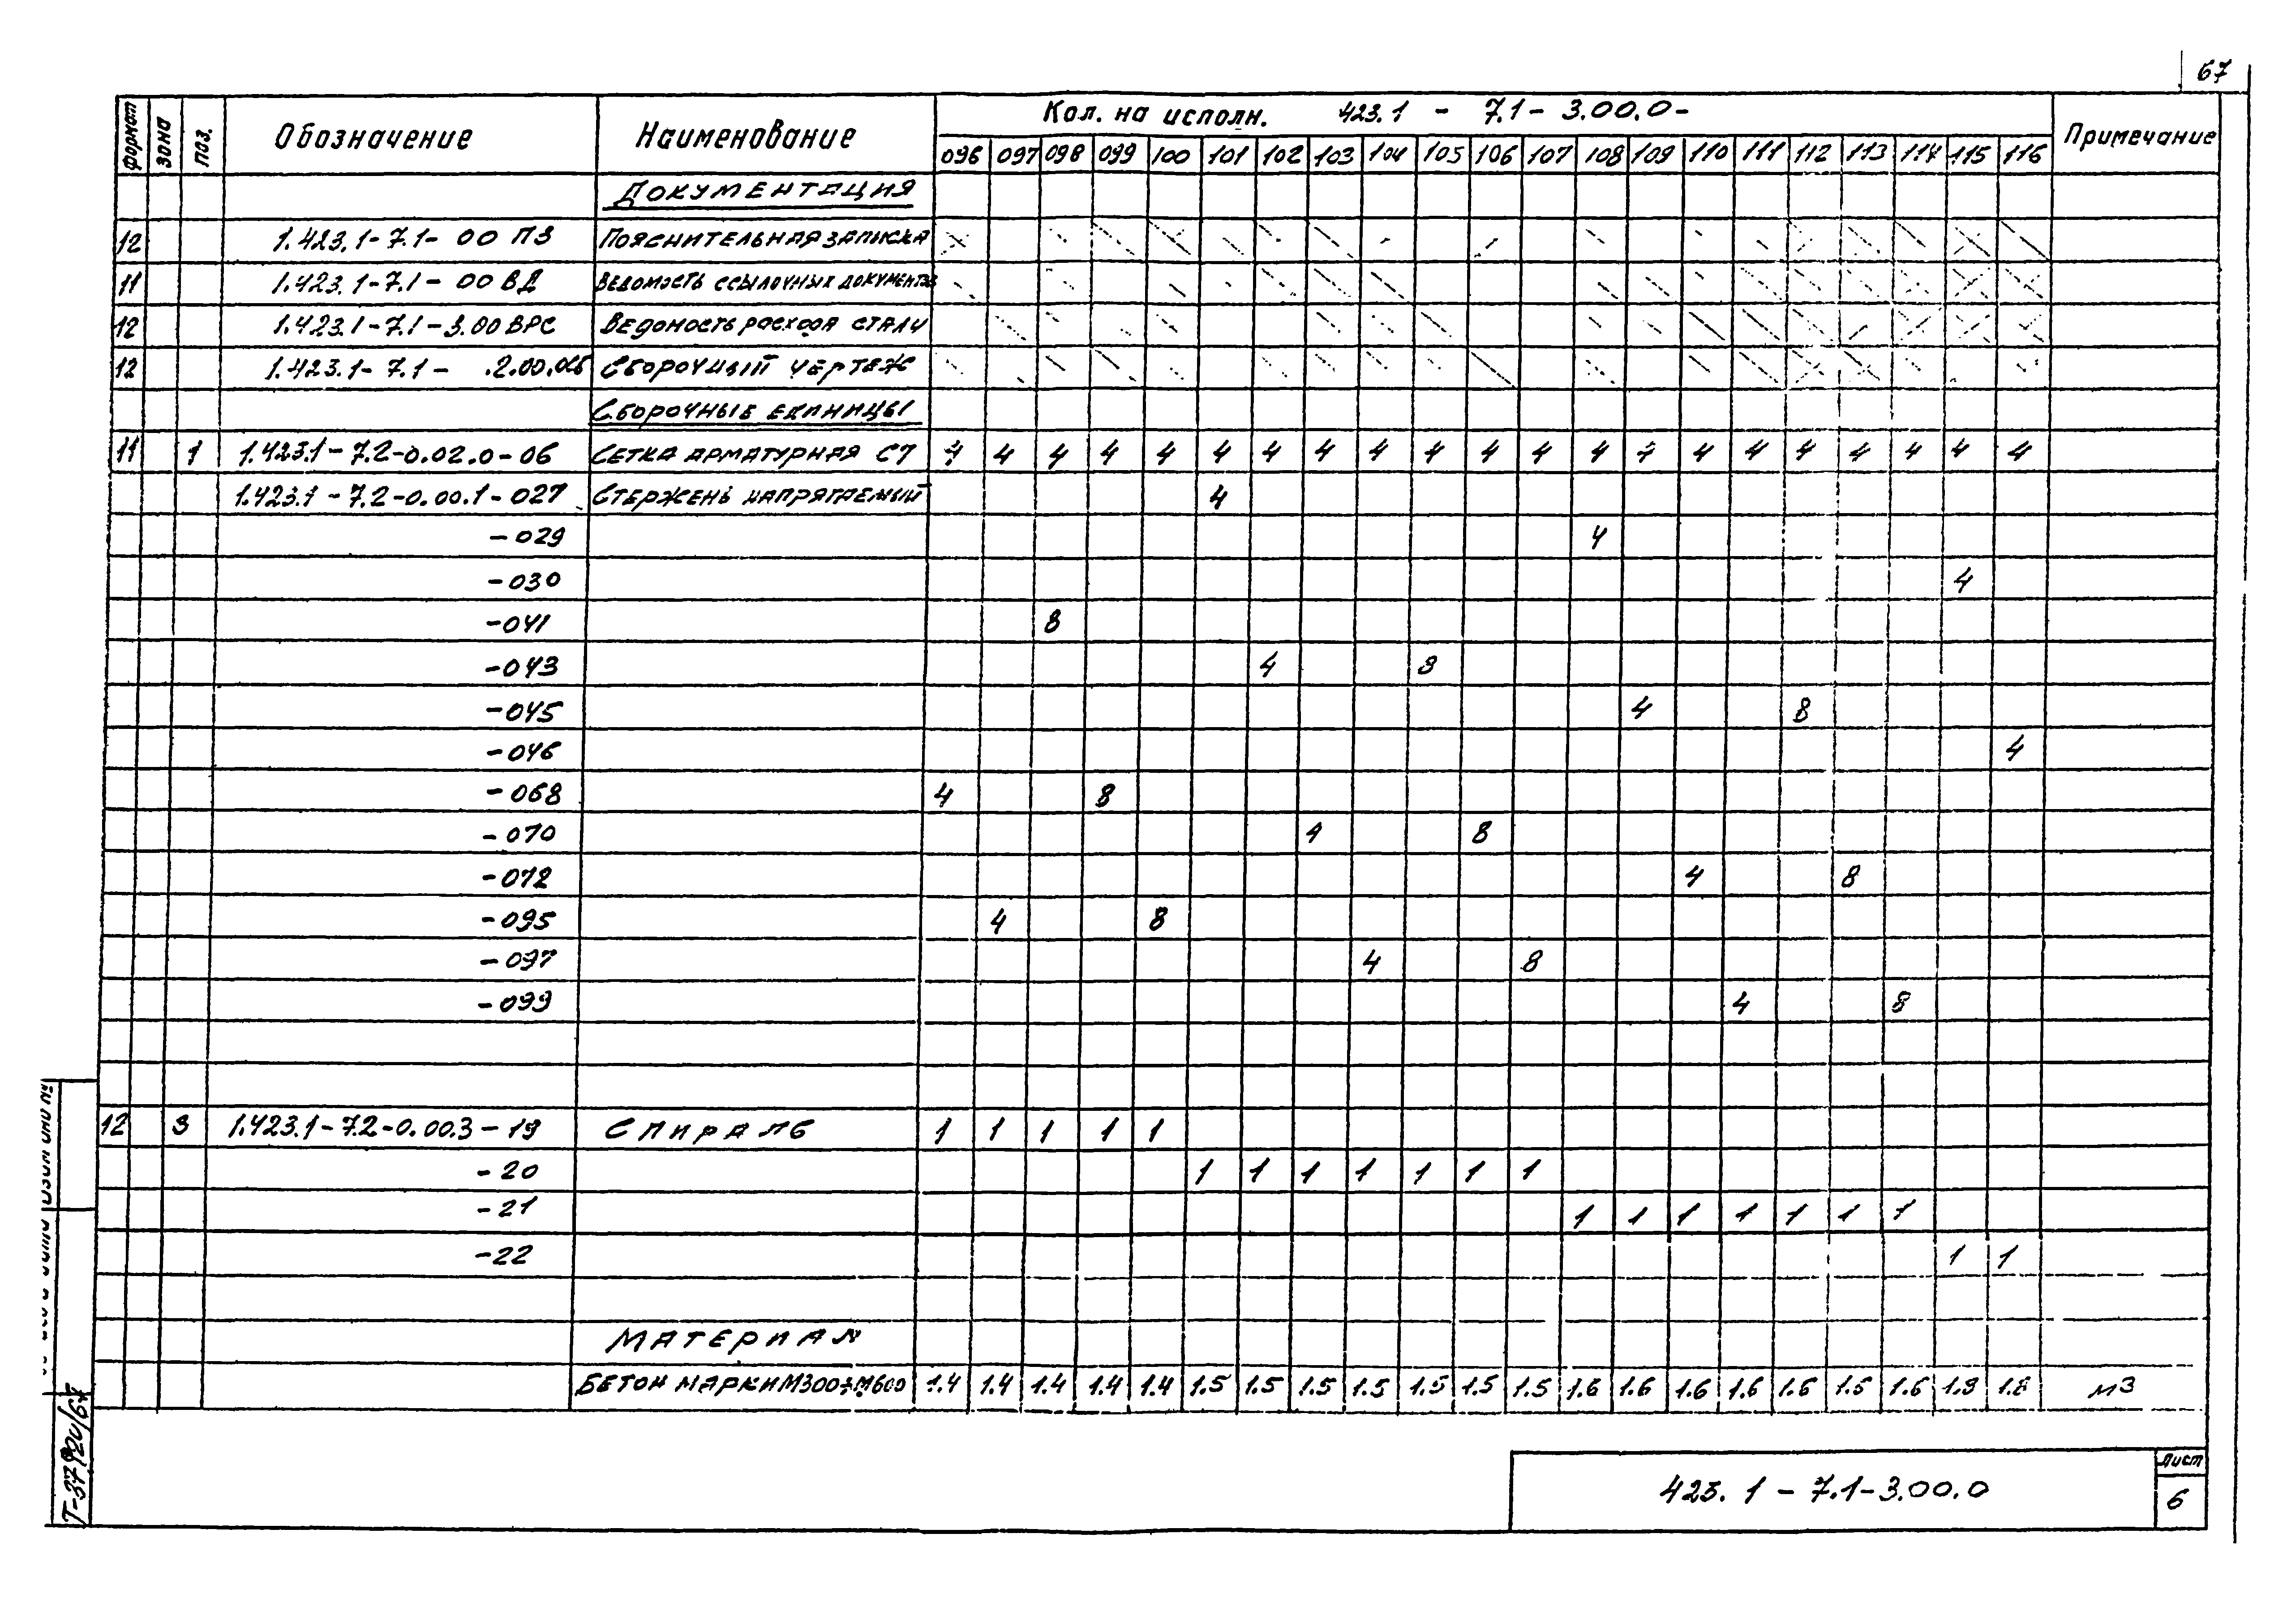 67
формат зона поз. Обозначение Наименование Кол. на исполн. 423.1 - 7.1 - 3.00.0 - Примечание
096 097 098 099 100 101 102 103 104 105 106 107 108 109 110 111 112 113 114 115 116
Документация
12 1.423.1-7.1-00 ПЗ Пояснительная записка
11 1.423.1-7.1-00 ВД Ведомость ссылочных документов
12 1.423.1-7.1-3.00 ВРС Ведомость расхода стали
12 1.423.1-7.1- .2.00.0СБ Сборочный чертеж
Сборочные единицы
11 1 1.423.1-7.2-0.02.0-06 Сетка арматурная С7 4 4 4 4 4 4 4 4 4 4 4 4 4 4 4 4 4 4 4 4 4
1.423.1-7.2-0.00.1-027 Стержень напрягаемый 4
-029 4
-030 4
-041 8
-043 4 8
-045 4 8
-046 4
-068 4 8
-070 4 8
-072 4 8
-095 4 8
-097 4 8
-099 4 8
12 3 1.423.1-7.2-0.00.3-19 Спираль 1 1 1 1 1
-20 1 1 1 1 1 1 1
-21 1 1 1 1 1 1 1
-22 1 1
Материал
Бетон марки М300÷М600 1.4 1.4 1.4 1.4 1.4 1.5 1.5 1.5 1.5 1.5 1.5 1.5 1.6 1.6 1.6 1.6 1.6 1.6 1.6 1.8 1.8 м3
423.1-7.1-3.00.0
Лист
6